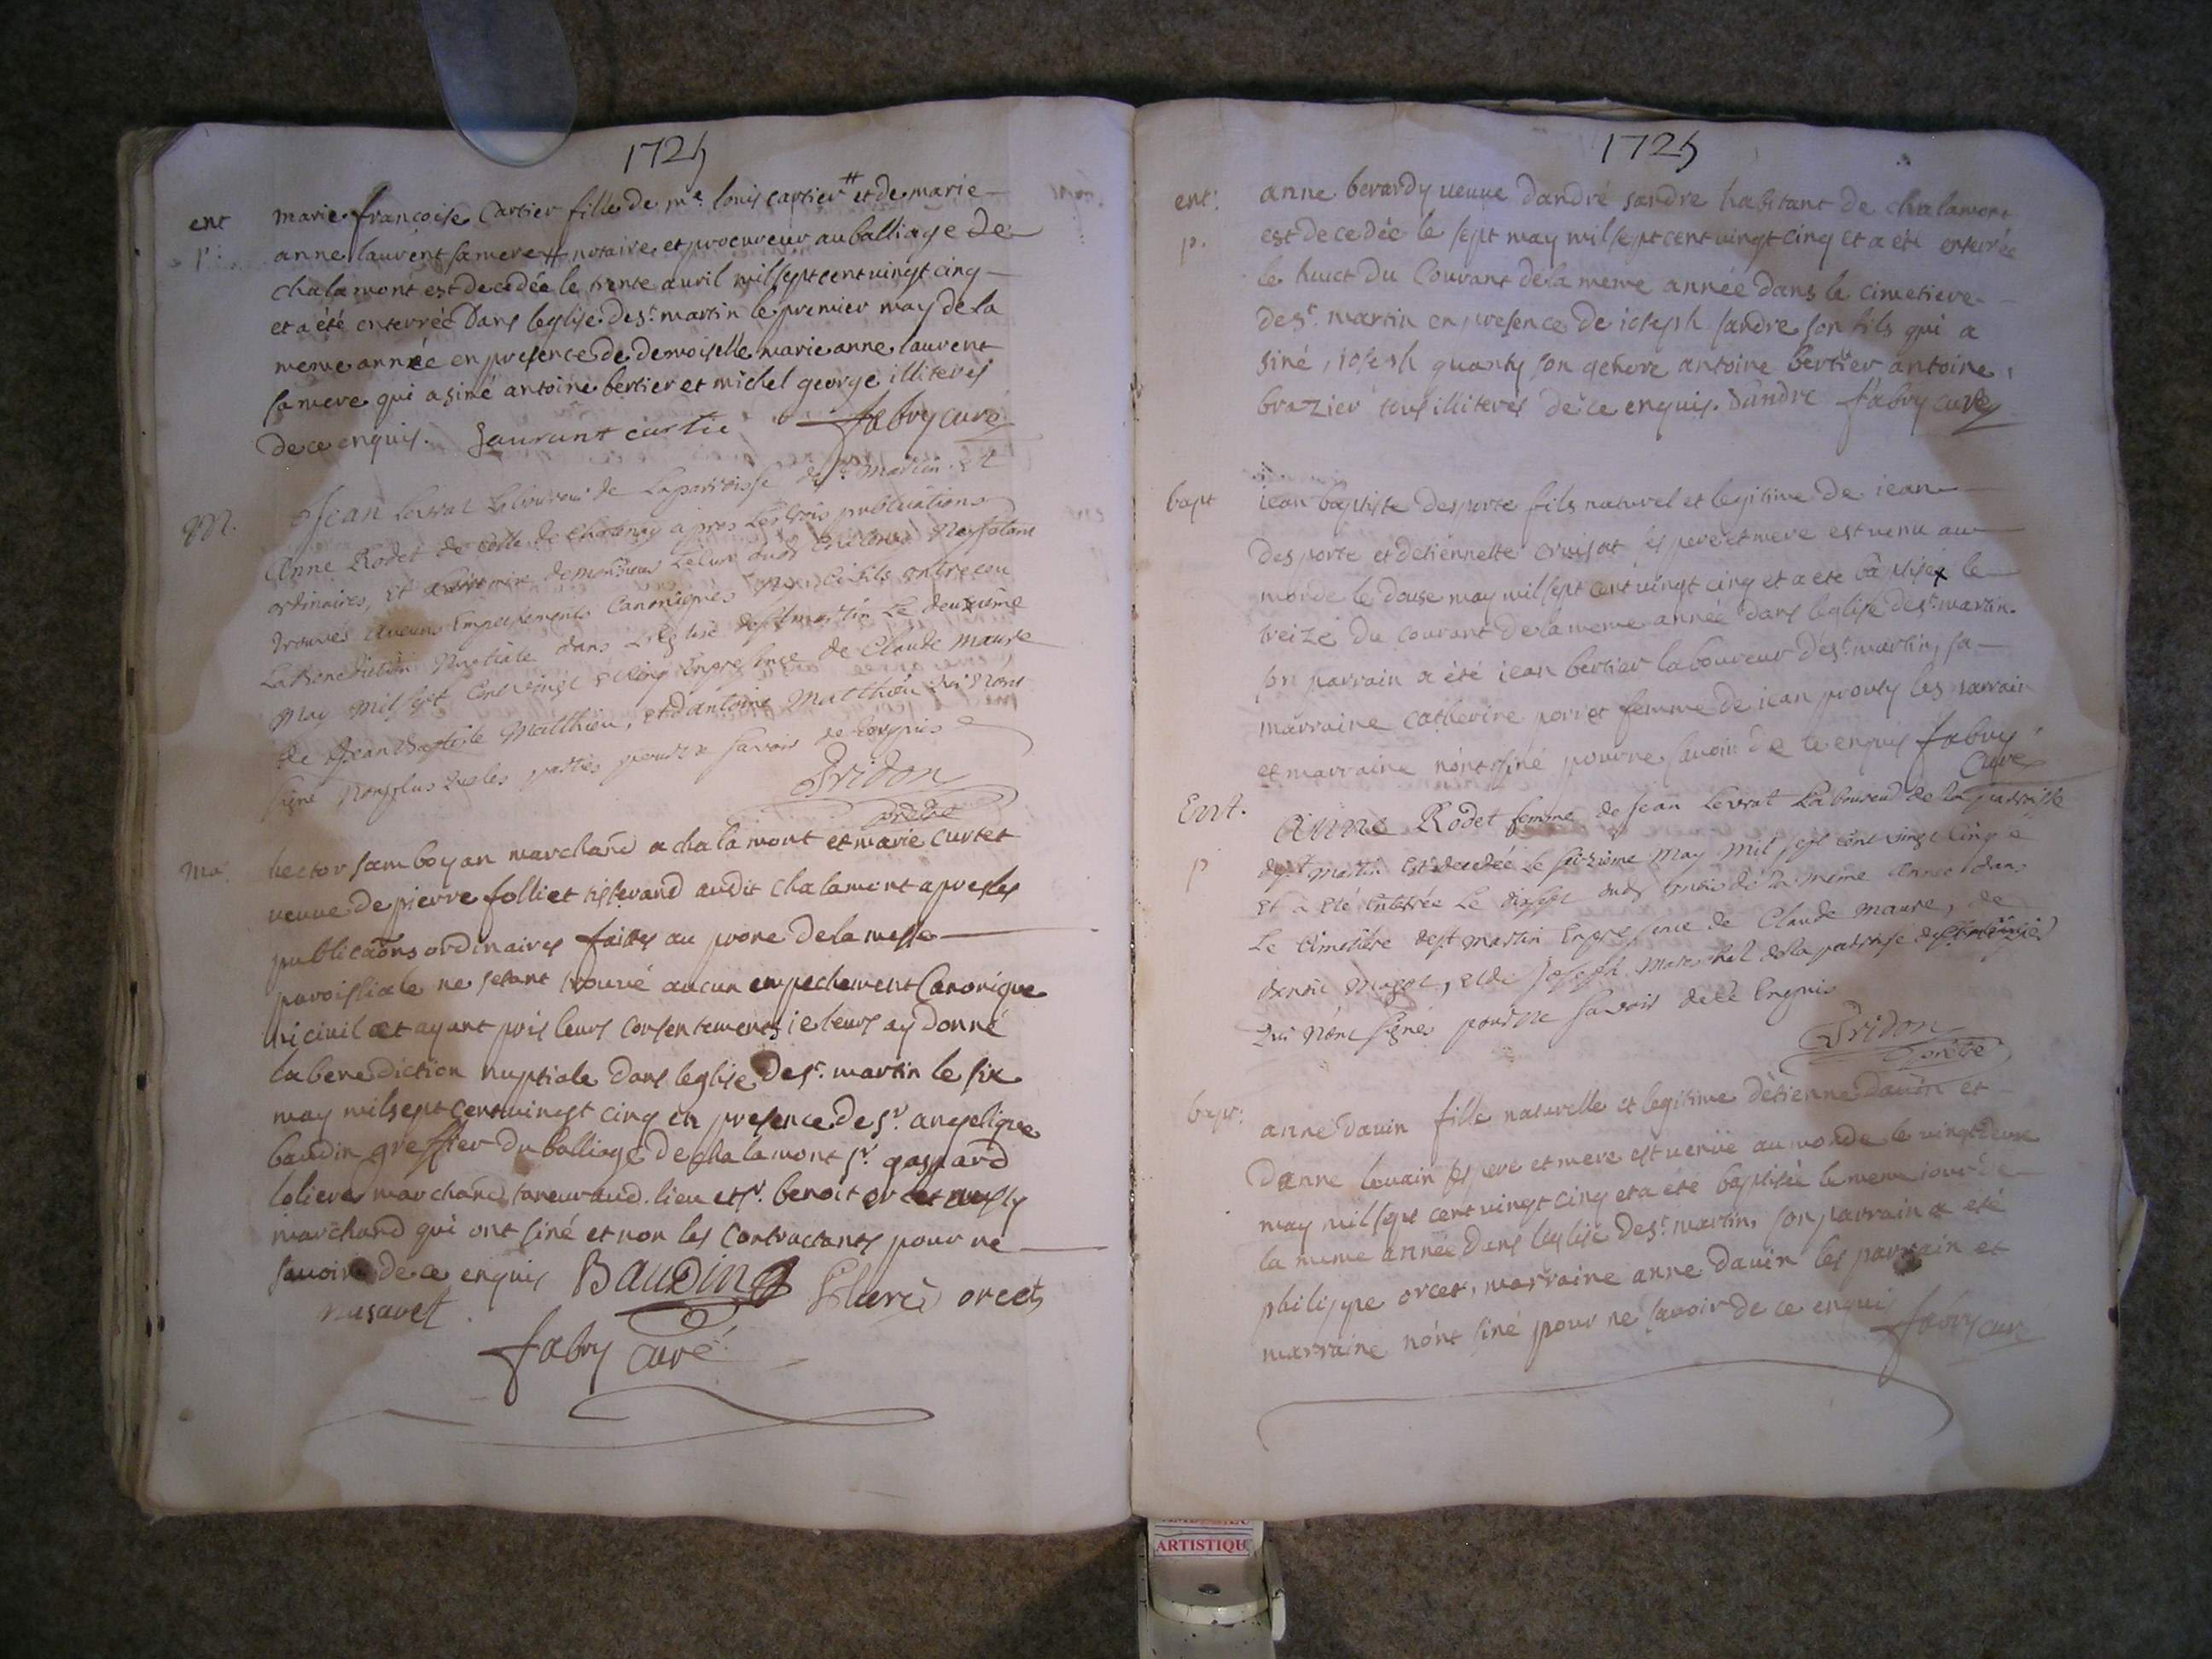 1725
ent marie françoise Cartier fille de me. louis cartier # et de marie
p. anne laurent sa mere # notaire et procureur au balliage de
chalamont est decedée le trente auril mil sept cent uingt cinq
et a été enterrée dans leglise de st. martin le premier may de la
meme année en presence de demoiselle marie anne laurent
sa mere qui a siné antoine bertier et michel george illiterés
de ce enquis. Laurant cartie fabry curé
M. Jean Levrat Laboureur de La parroisse de st. Martin et
Anne Rodet de Celle de après Les trois publications
ordinaires, Et de monsieur Le Curé dud. Ne sestant
trouvés aucuns Empechements Canoniques Civils ont receu
La Benediction Nuptiale dans LEglise de st martin Le deuxième
May mil sept Cent vingt et Cinq En presence de Claude Maure
de Jean Baptiste Matthieu, et d'antoine Matthieu qui n'ont
signé Non plus que les parties pour ne savoir de ce enquis
Pridon
prêtre
ma. hector samboyan marchand a chalamont et marie curtet
ueuue de pierre folliet tisserand audit chalamont apres les
publicaons ordinaires faites au prone de la messe
paroissiale ne setant trouué aucun empechement Canonique
ni ciuil et ayant pris leurs consentements ie leurs ay donné
la benediction nuptiale dans leglise de st. martin le six
may mil sept cent uingt cinq en presence de sr. angelique
baudin greffier du balliage de chalamont sr. gaspard
loliere marchand taneur aud. lieu et sr. benoit orcet
marchand qui ont siné et non les contractants pour ne
sauoir de ce enquis Baudin orcet
fabry curé
1725
ent. anne berardy ueuue dandré sandre habitant de chalamont
p. est decedée le sept may mil sept cent uingt cinq et a été enterrée
le huict du Courant de la meme année dans le cimetiere
de st. martin en presence de ioseph sandre son fils qui a
siné, ioseph quanty son gendre antoine bertier antoine
brazier tous illiterés de ce enquis. Sandre fabry curé
bapt iean baptiste desporte fils naturel et legitime de iean
desporte et detiennette cruisat ses pere et mere est uenu au
monde le douse may mil sept cent uingt cinq et a été baptisé le
treize du courant de la meme année dans leglise de st. martin.
son parrain a été iean bertier laboureur de st. martin, sa
marraine catherine poriet femme de iean prouty les parrain
et marraine n'ont siné pour ne sauoir de ce enquis fabry
Curé
Ent. Anne Rodet femme de Jean Levrat Laboureur de la parroisse
p de st Martin est decedée Le seizième May Mil sept cent vingt Cinq
Et a été Enterrée Le dixsept dud. mois de la même Année dans
Le Cimetière de st martin En presence de Claude Maure, de
Benoit, et de Joseph Mareschal de la parroisse de
Qui n'ont signés pour ne savoir de ce Enquis
Pridon
prêtre
bapt: anne dauin fille naturelle et legitime détienne dauin et
danne louain ses pere et mere est uenüe au monde le uingt deux
may mil sept cent uingt cinq et a été baptisée le meme iour de
la meme année dans leglise de st. martin, son parrain a été
philippe orcet, marraine anne dauin les parrain et
marraine n'ont siné pour ne sauoir de ce enquis fabry curé
ARTISTIQU